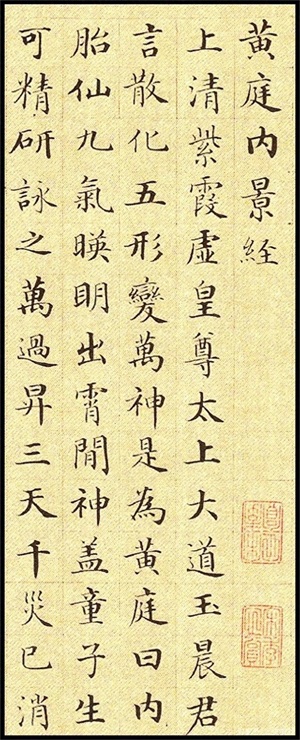 黄庭内景経
上清紫霞虚皇尊太上大道玉晨君
言散化五形變萬神是為黄庭曰内
胎仙九氣暎明出霄閒神盖童子生
可精研詠之萬過昇三天千災已消